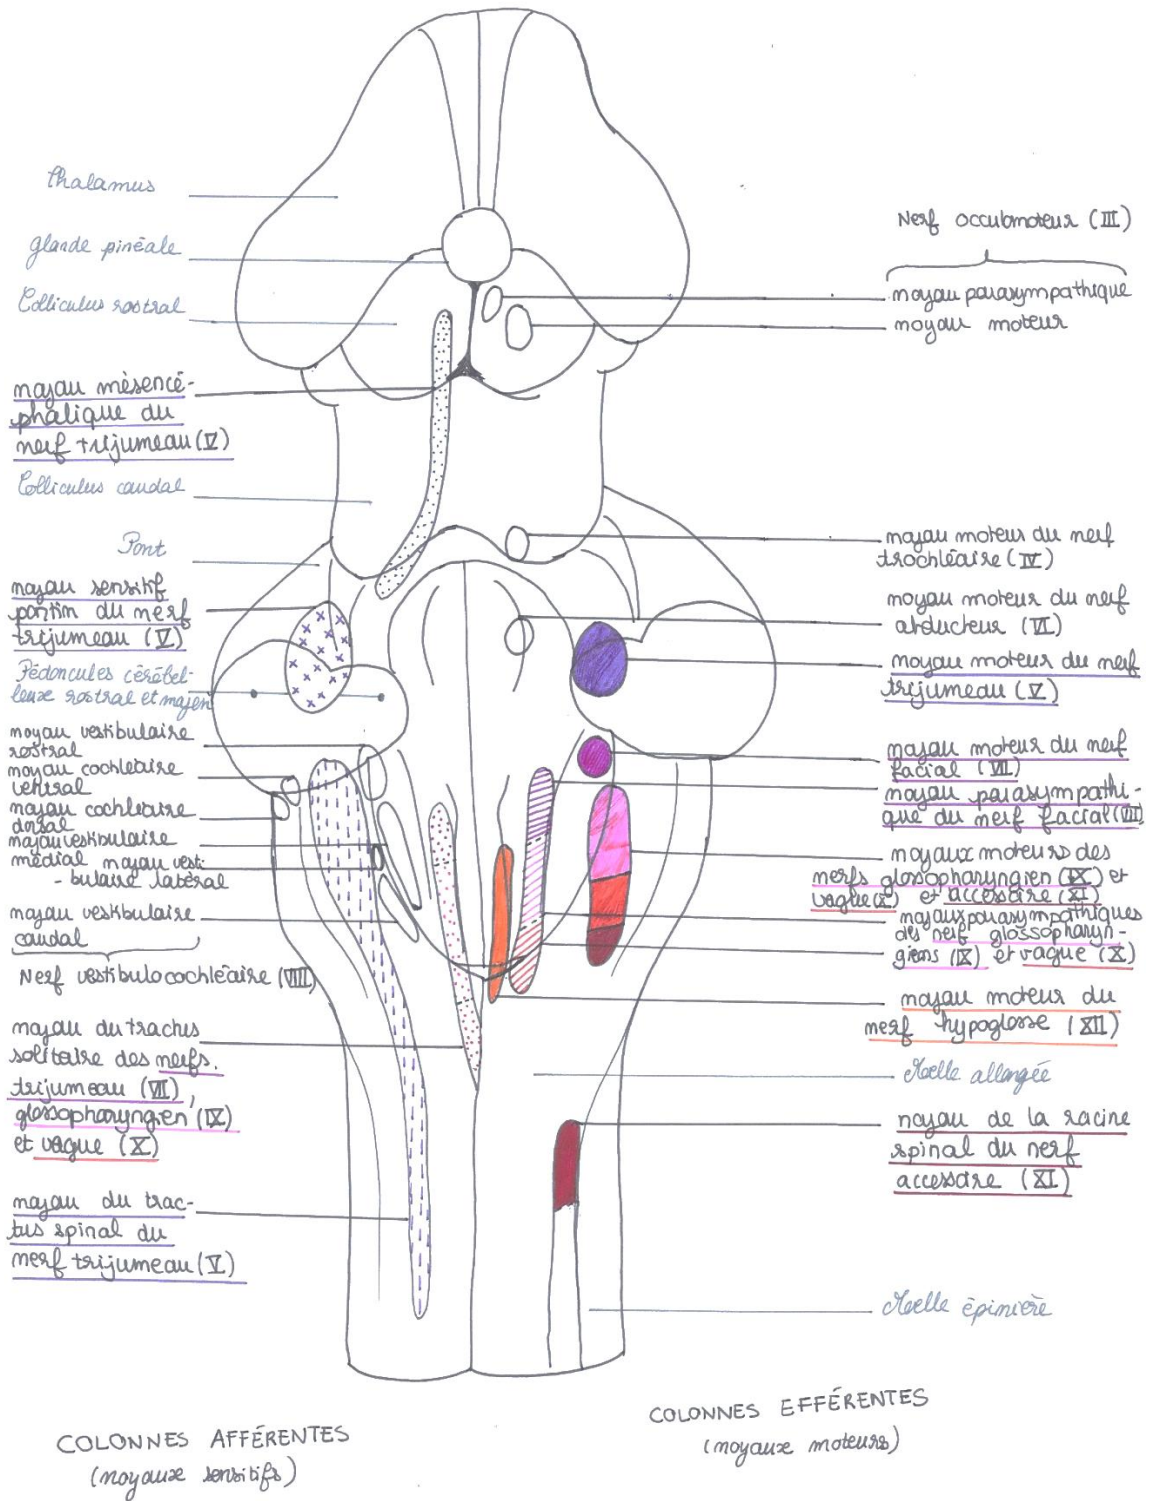 Thalamus
glande pinéale
Colliculus rostral
noyau mésencé-
phalique du
nerf trijumeau (V)
Colliculus caudal
Pont
noyau sensitif
pontin du nerf
trijumeau (V)
Pédoncules cérébel-
leux rostral et moyen
noyau vestibulaire
rostral
noyau cochléaire
ventral
noyau cochléaire
dorsal
noyau vestibulaire
médial noyau vesti-
- bulaire latéral
noyau vestibulaire
caudal
Nerf vestibulocochléaire (VIII)
noyau du tractus
solitaire des nerfs
trijumeau (VII),
glossopharyngien (IX)
et vague (X)
noyau du trac-
tus spinal du
nerf trijumeau (V)
COLONNES AFFÉRENTES
(noyaux sensitifs)
Nerf occulomoteur (III)
noyau parasympathique
noyau moteur
noyau moteur du nerf
trochléaire (IV)
noyau moteur du nerf
abducteur (VI)
noyau moteur du nerf
trijumeau (V)
noyau moteur du nerf
facial (VII)
noyau parasympathi-
que du nerf facial (VII)
noyaux moteurs des
nerfs glossopharyngien (IX) et
vague (X) et accessoire (XI)
noyaux parasympathiques
des nerf glossopharyn-
giens (IX) et vague (X)
noyau moteur du
nerf hypoglosse (XII)
Moelle allongée
noyau de la racine
spinal du nerf
accessoire (XI)
Moelle épinière
COLONNES EFFÉRENTES
(noyaux moteurs)